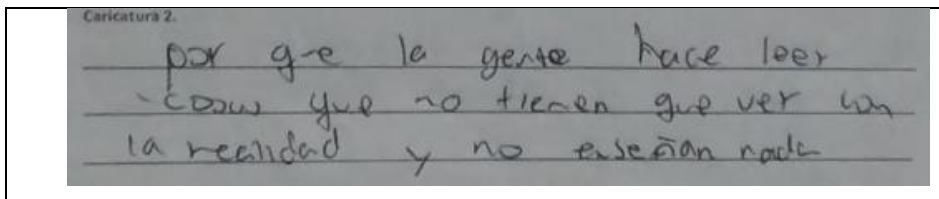 Caricatura 2.
por que la gente hace leer
cosas que no tienen que ver con
la realidad y no enseñan nada